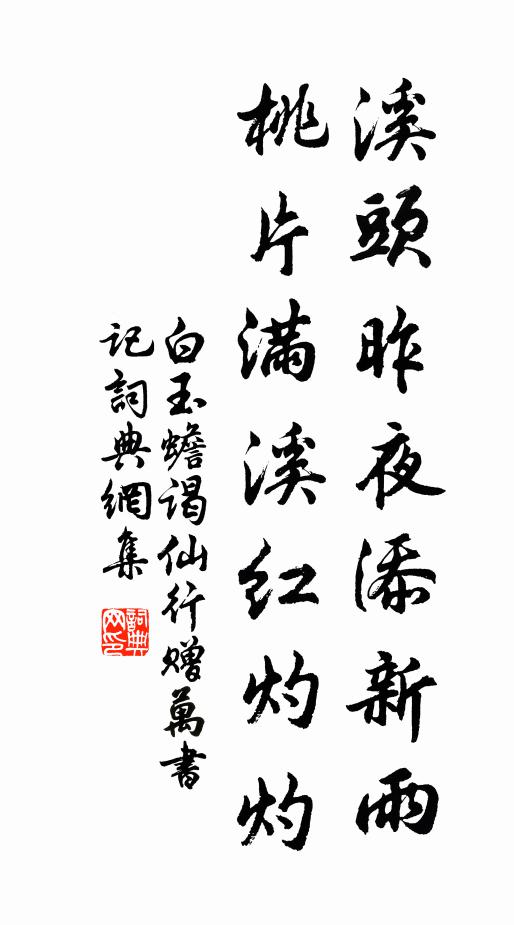 溪頭昨夜添新雨
桃片滿溪紅灼灼
白玉蟾谒仙行赠萬書
记詞典網集
詞典